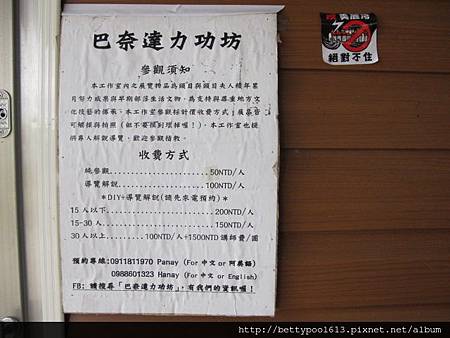 巴奈達力功坊
參觀須知
本工作室內之展覽物品為頭目與頭目夫人積年累
月努力成果與早期部落生活文物，為支持與尊重地方文
化技藝的傳承，本工作室參觀採計價收費方式；展茶皆
可觸摸與拍照（但不要摸到壞掉喔！）。本工作室也提
供專人解說導覽，歡迎參觀指教。
收費方式
純參觀......................50NTD/人
導覽解說....................100NTD/人
*DIY+導覽解說(請先來電預約)*
15人以下........................200NTD/人
15-30人.........................150NTD/人
30人以上........100NTD/人+1500NTD 講師費/團
預約專線:0911811970 Panay (For 中文 or 阿美語)
0988601323 Hanay (For 中文 or English)
FB: 請搜尋「巴奈達力功坊」，有我們的資訊喔！
絕對不住
http://bettypoo1613.pixnet.net/album